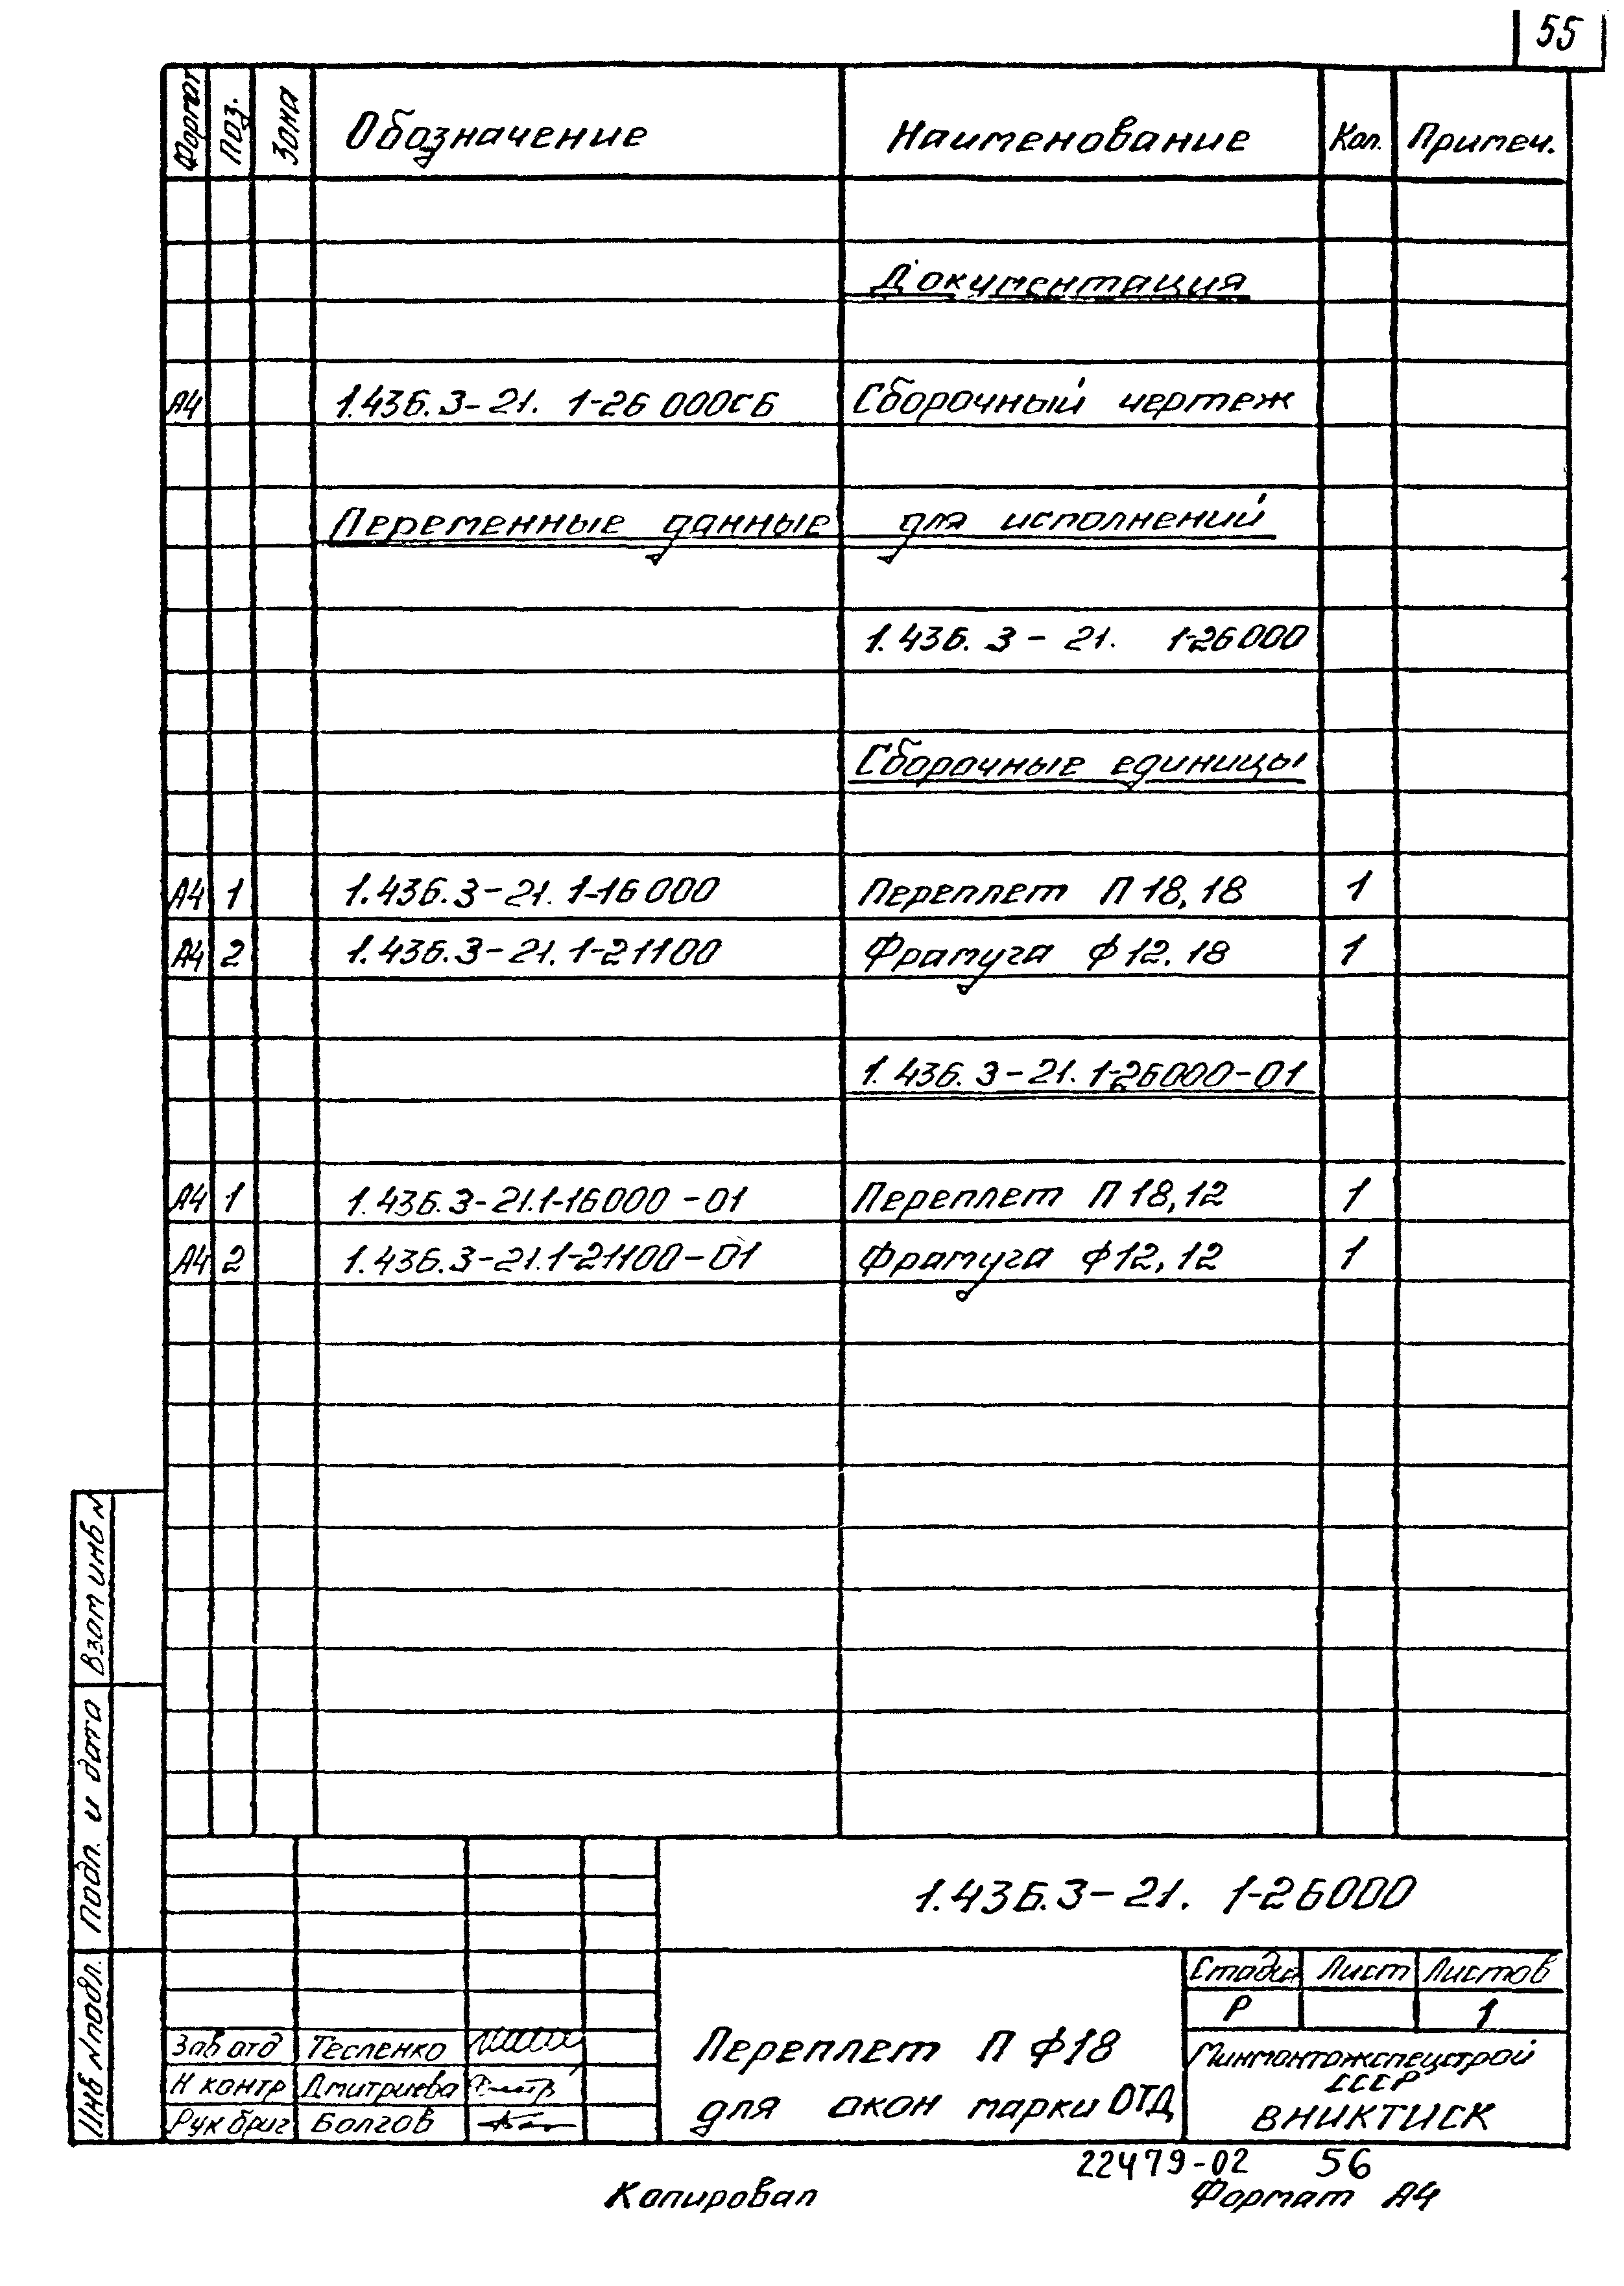 55
Формат Поз. Зона Обозначение Наименование Кол. Примеч.
Документация
А4 1.436.3-21. 1-26 000СБ Сборочный чертеж
Переменные данные для исполнений
1.436.3-21. 1-26000
Сборочные единицы
А4 1 1.436.3-21. 1-16 000 Переплет П 18,18 1
А4 2 1.436.3-21. 1-21100 Фрамуга Ф 12.18 1
1.436.3-21. 1-26000-01
А4 1 1.436.3-21.1-16000-01 Переплет П 18,12 1
А4 2 1.436.3-21.1-21100-01 Фрамуга Ф12,12 1
Взам инв N
Подп. и дата
Инв N подл.
1.436.3-21. 1-26000
Стадия Лист Листов
Р 1
Зав отд Тесленко
Н контр Дмитриева
Рук бриг Болгов
Переплет П Ф18
для окон марки ОТД
Минмонтажспецстрой
СССР
ВНИКТИСК
22479-02 56
Копировал Формат А4